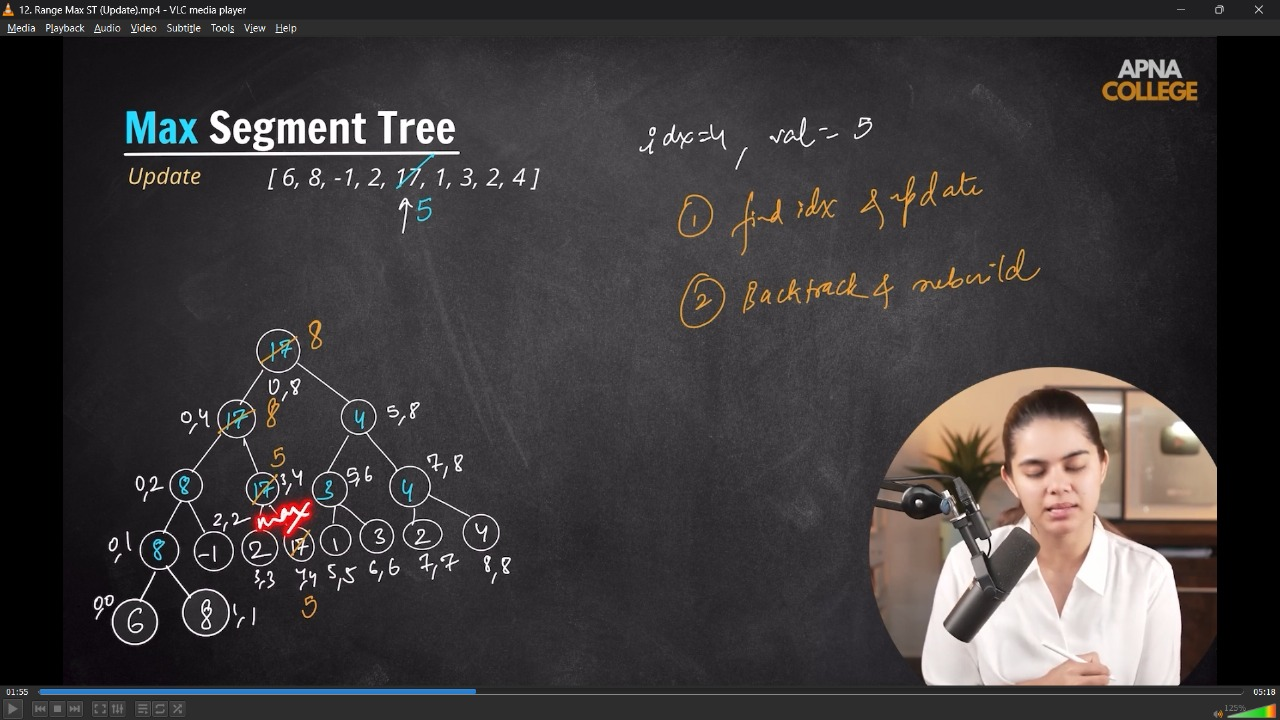 12. Range Max ST (Update).mp4 - VLC media player
Media Playback Audio Video Subtitle Tools View Help
APNA
COLLEGE
Max Segment Tree
idx=4, val=5
Update [ 6, 8, -1, 2, 17, 1, 3, 2, 4 ]
5
① find idx & update
② Backtrack & rebuild
17 8
0,8
0,4 17 8 4 5,8
5
0,2 8 17 3,4 3 5,6 4 7,8
2,2 max
0,1 8 -1 2 17 1 3 2 4
3,3 4,4 5,5 6,6 7,7 8,8
5
0,0 6 8 1,1
01:55 05:18
125%